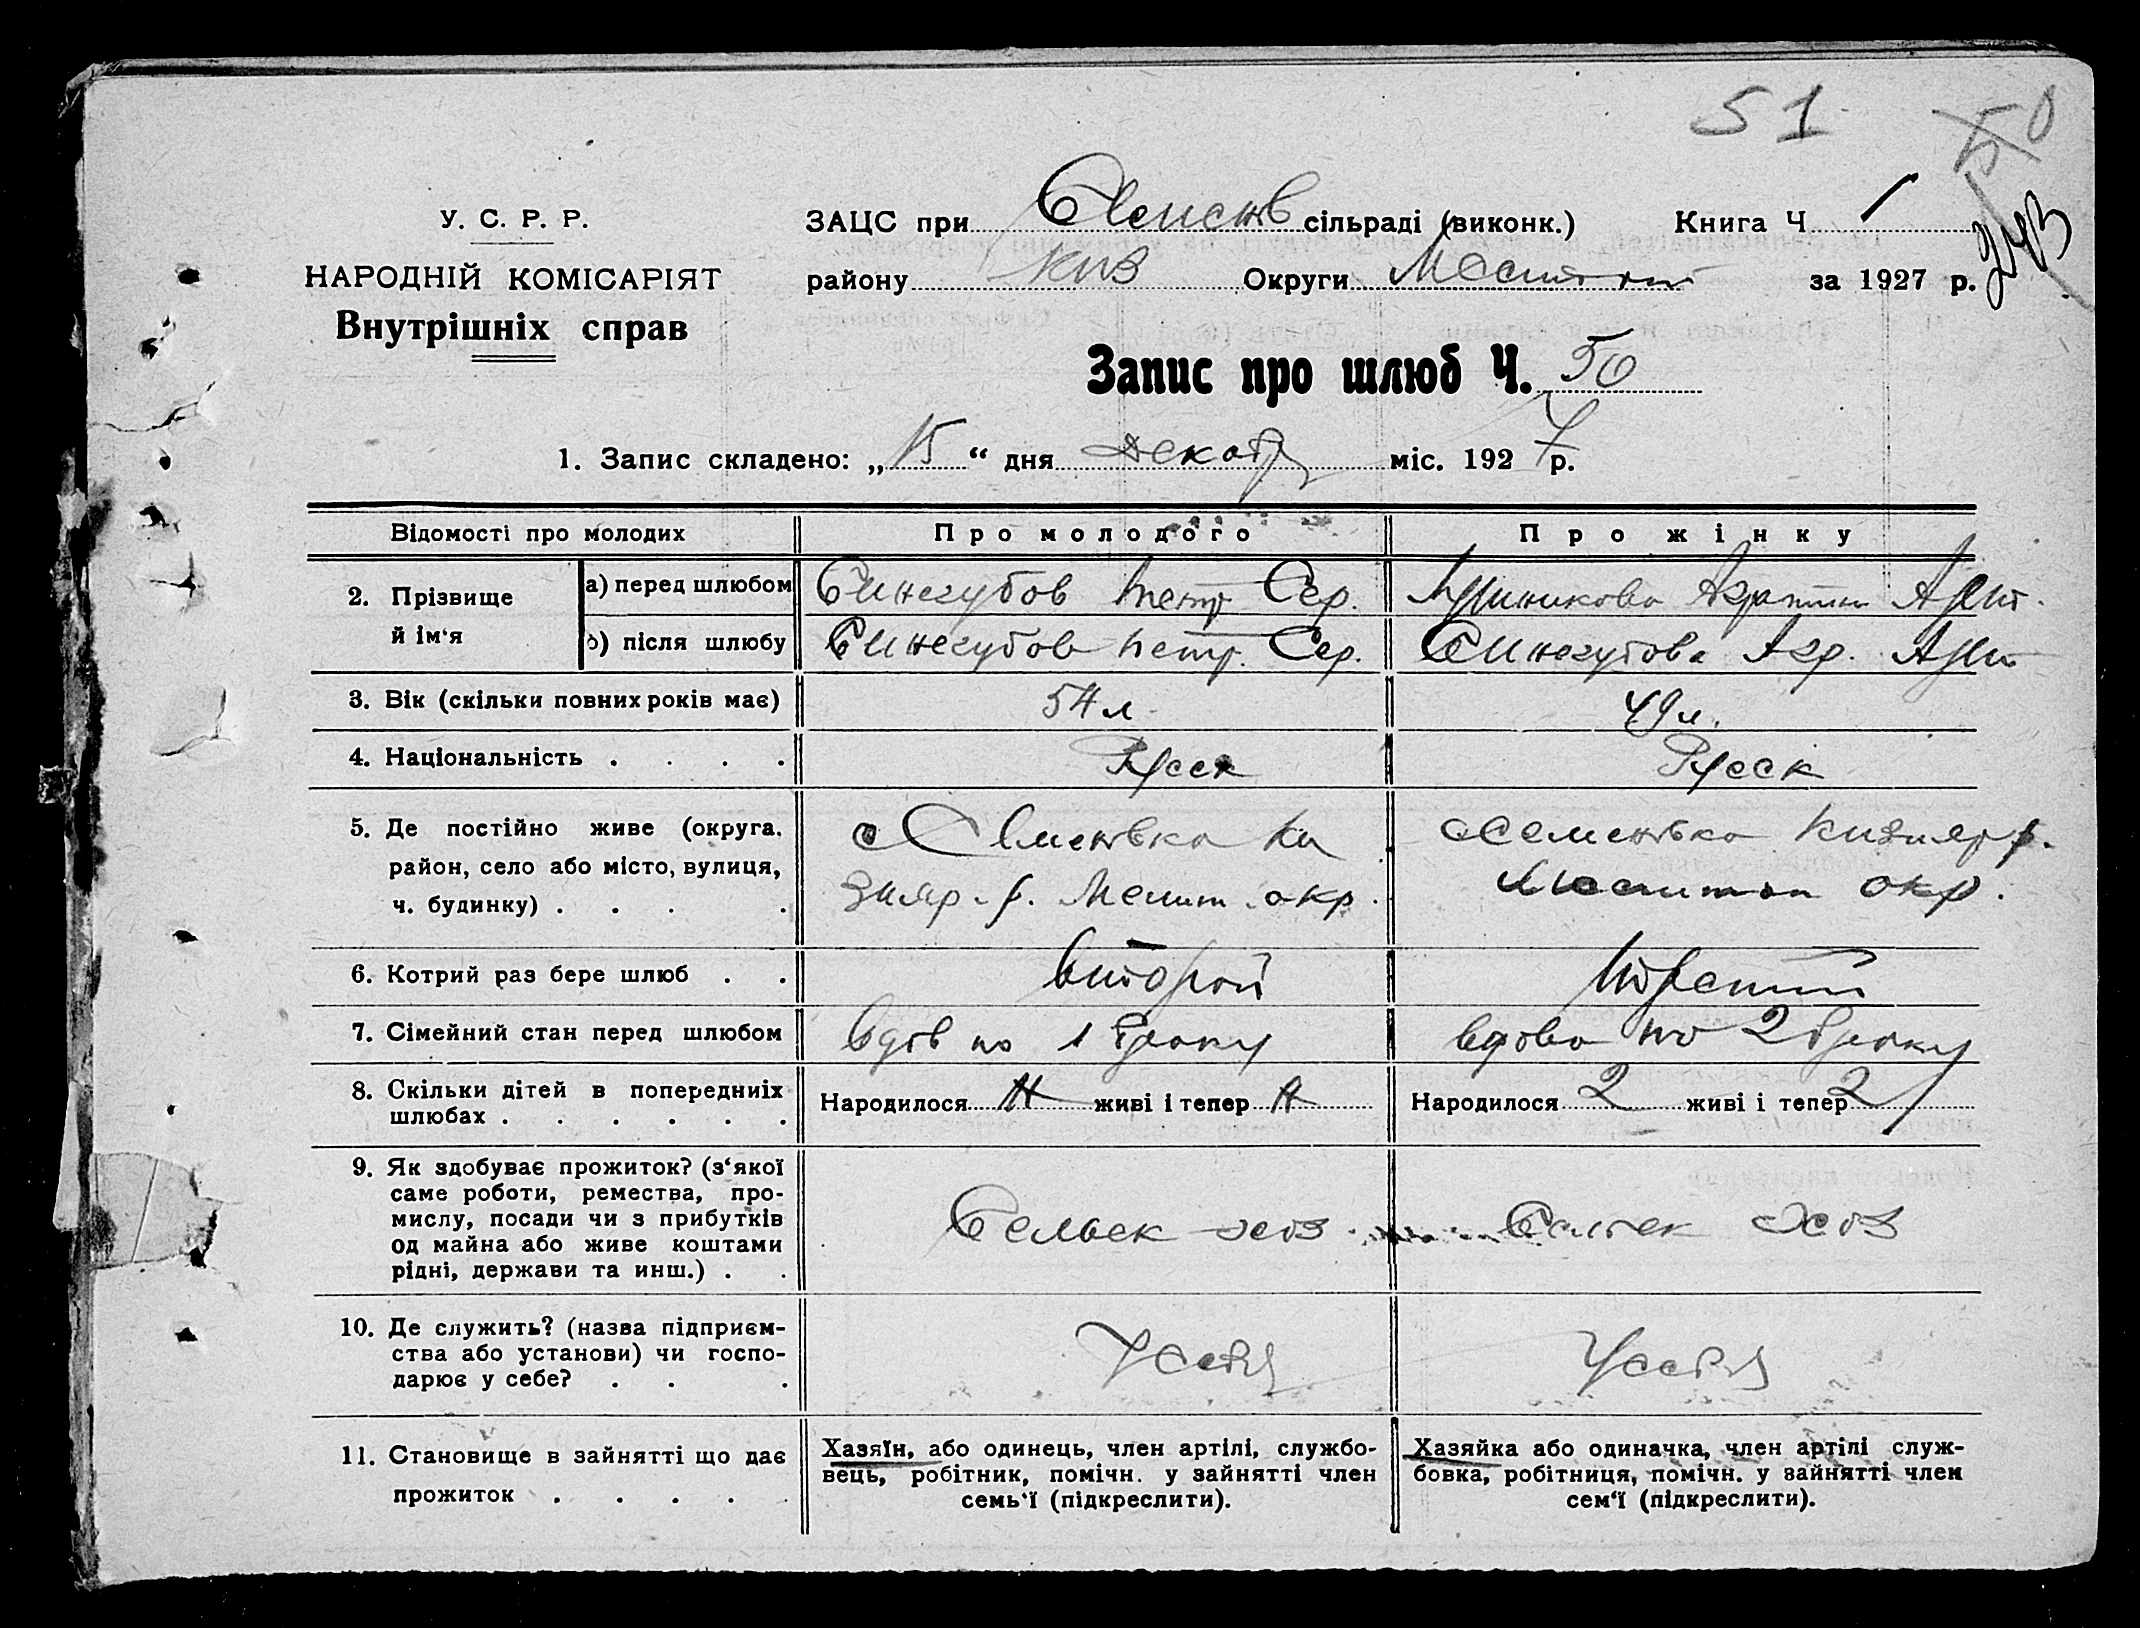 51
50
243
У. С. Р. Р.
НАРОДНІЙ КОМІСАРІЯТ
Внутрішніх справ
ЗАЦС при сільраді (виконк.) Книга Ч 1
району Киз Округи за 1927 р.
Запис про шлюб Ч. 50
1. Запис складено: „15“ дня Декабр міс. 1927 р.
Відомості про молодих
Про молодого
Про жінку
2. Прізвище й ім‘я
а) перед шлюбом
Синегубов Петр Сер.
б) після шлюбу
Синегубов Петр. Сер.
Синегубова Агр.
3. Вік (скільки повних років має)
54 л
49 л.
4. Національність . . . .
Русск
Русск
5. Де постійно живе (округа,
район, село або місто, вулиця,
ч. будинку) . . . .
с Семеновка Ки
зияр. р. Мелит. окр.
с Семеновка Кизияр р.
Мелитоп окр.
6. Котрий раз бере шлюб . .
второй
третий
7. Сімейний стан перед шлюбом
вдов по 1 браку
вдова по 2 браку
8. Скільки дітей в попередниіх
шлюбах . . . . . .
Народилося Н живі і тепер Н
Народилося 2 живі і тепер 2
9. Як здобуває прожиток? (з‘якої
саме роботи, ремества, про-
мислу, посади чи з прибутків
од майна або живе коштами
рідні, держави та инш.) . .
Сельск хоз
Сельск хоз
10. Де служить? (назва підприєм-
ства або установи) чи госпо-
дарює у себе? . . .
У себя
У себя
11. Становище в зайнятті що дає
прожиток . . . . .
Хазяїн, або одинець, член артілі, службо-
вець, робітник, помічн. у зайнятті член
семь‘ї (підкреслити).
Хазяйка або одиначка, член артілі служ-
бовка, робітниця, помічн. у зайнятті член
сем‘ї (підкреслити).